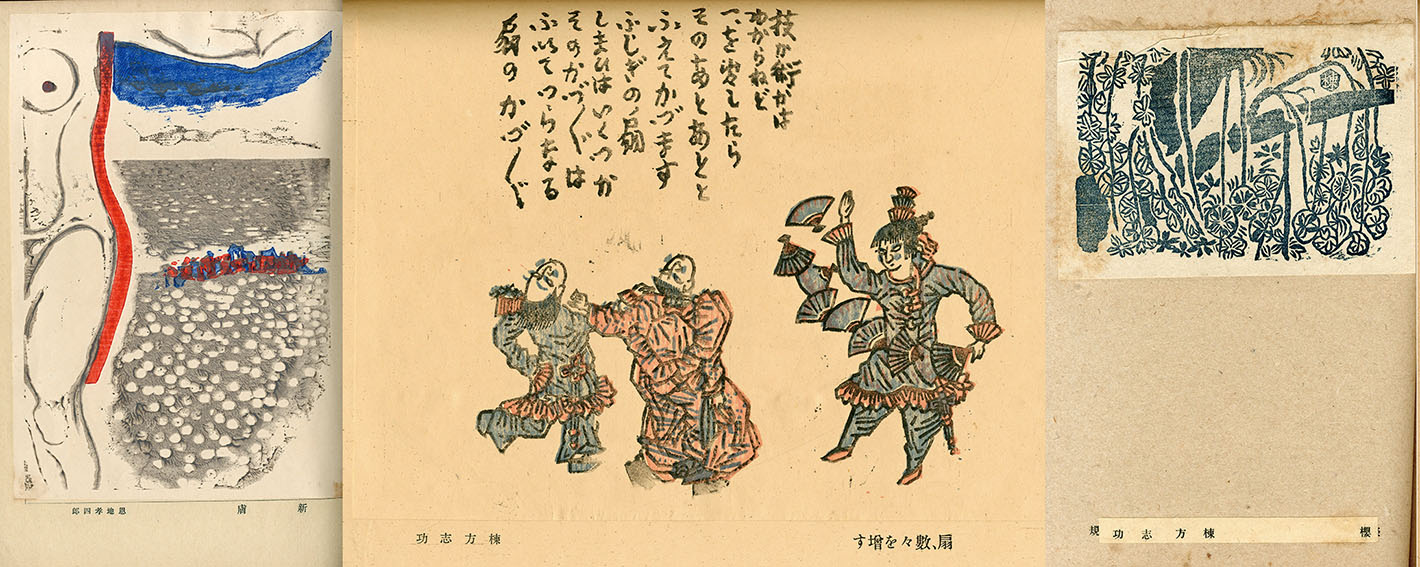 新膚 恩地孝四郎
技か術かは
わからねど
一を したら
そのあとあとと
ふえてかづます
ふしぎの扇
しまひはいくつか
そのかづ〳〵は
ふいてつらなる
扇のかづ〳〵
扇、數々を增す 棟方志功
櫻 棟方志功
規